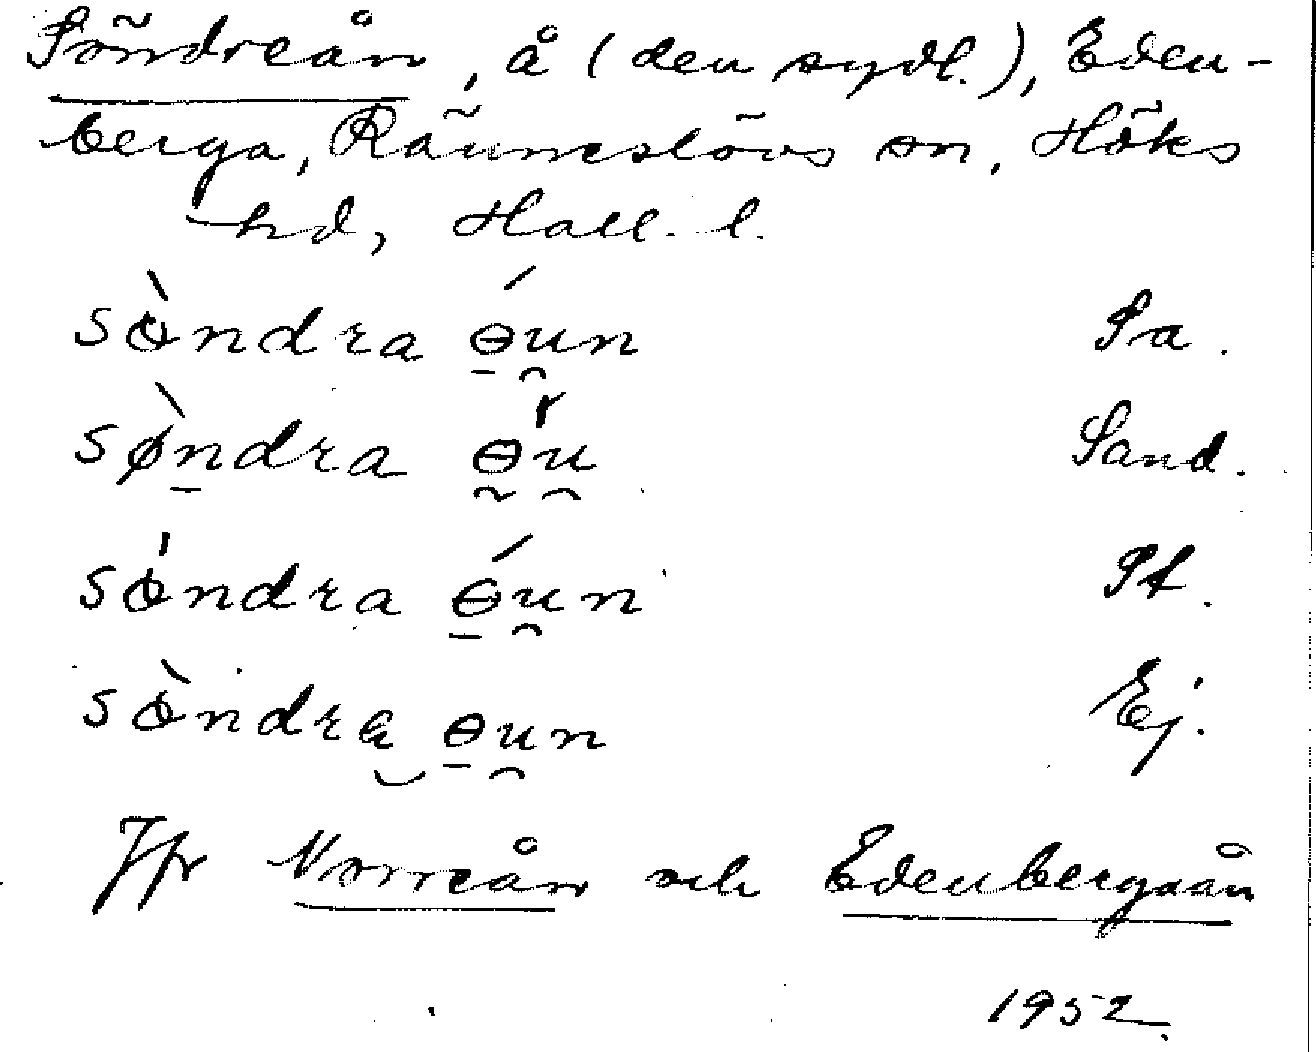 Söndreån, å (den sydl.), Eden-
berga, Ränneslövs sn, Höks
hd, Hall. l.
sὸndra ɵ́u̯n Sa.
sø̀ndra ɵu̯ Sand.
sóndra ɵ́u̯n St.
sòndra ɵu̯n Ej.
Jfr Norreån och Edenbergaån
1952.